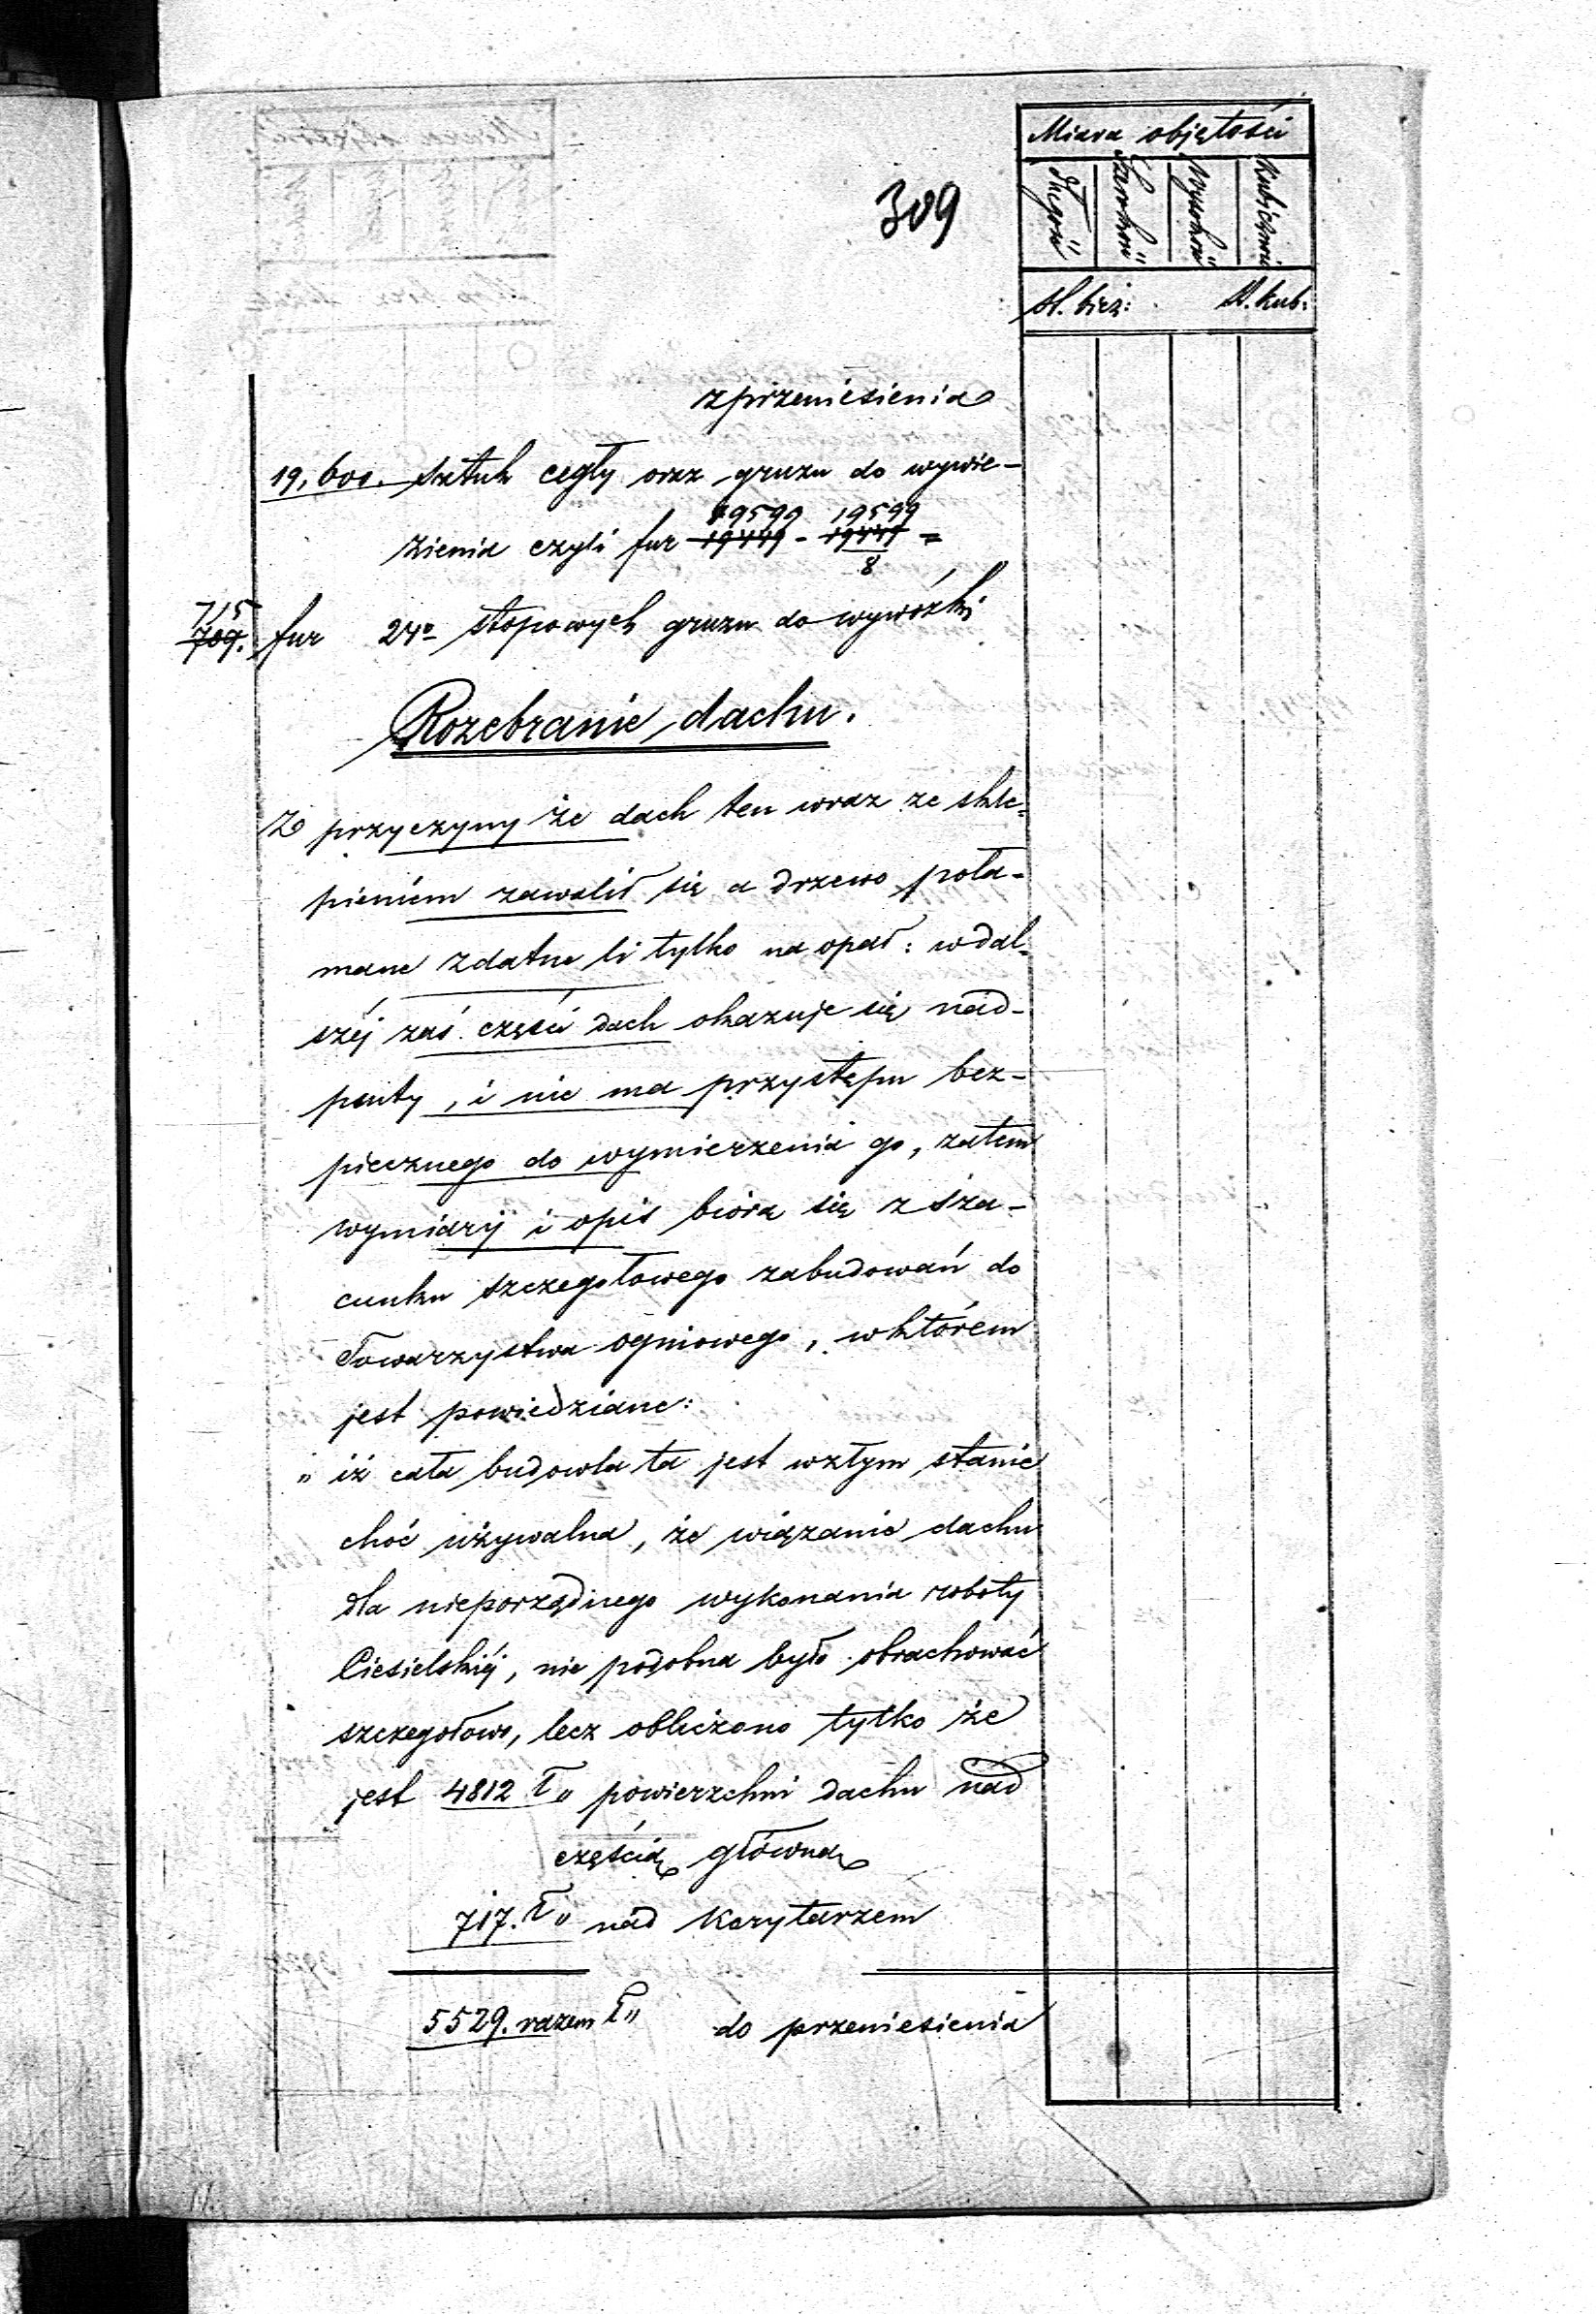 309
Miara objętości
długość szerokość wysokość Kubiczność
st. bież: st. kub:
z przeniesienia
19,600. sztuk cegły oraz gruzu do wywie-
19599 19599
zienia czyli fur 19449 - 19449 =
8
715
709. fur 24o stopowych gruzu do wywózki
Rozebranie dachu.
Z przyczyny że dach ten wraz ze skle-
pieniem zawalił się a drzewo poła-
mane zdatne li tylko na opał: w dal-
széj zaś części dach okazuje się nad-
psuty, i nie ma przystępu bez-
piecznego do wymierzenia go, zatem
wymiary i opis biorą się z sza-
cunku szczegołowego zabudowań do
Towarzystwa ogniowego, w którem
jest powiedziane:
" iż cała budowla ta jest w złym stanie
choć używalna, że wiązanie dachu
dla nieporządnego wykonania roboty
Ciesielskiéj, nie podobna było obrachować
szczegołowo, lecz obliczono tylko że
jest 4812 powierzchni dachu nad
częścią główną
717. nad Korytarzem
5529. razem do przeniesienia